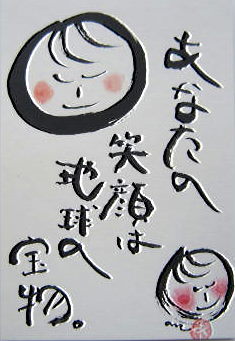 あなたの
笑顔は
地球の
宝物。